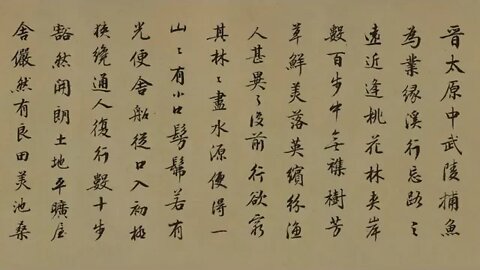 晉太原中武陵捕魚
為業緣溪行忘路之
遠近逢桃花林夾岸
數百步中無襍樹芳
草鮮美落英繽紛漁
人甚異之復前行欲窮
其林〻盡水源便得一
山〻有小口髣髴若有
光便舍船從口入初極
狹纔通人復行數十步
豁然開朗土地平曠屋
舍儼然有良田美池桑